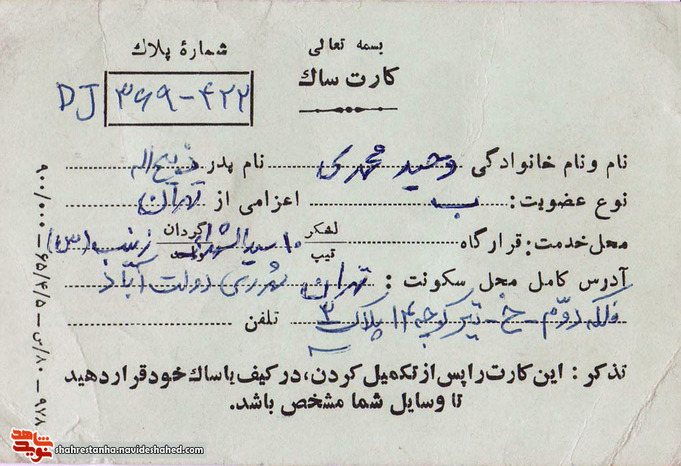 بسمه تعالی
کارت ساك
شمارهٔ پلاك
DJ ۳۶۹-۴۲۲
نام و نام خانوادگی وحید محمدی نام پدر ذبیح اله
نوع عضویت: ب اعزامی از تهران
محل خدمت: قرارگاه لشکر تیپ ۱۰ سیدالشهداء گردان واحد زینب (س)
آدرس کامل محل سکونت: تهران شهرری دولت آباد
فلکه دوم - خ - تیر کوچه ۱۴ پلاک ۳ تلفن
تذکر: این کارت را پس از تکمیل کردن، در کیف یا ساك خود قرار دهید
تا وسایل شما مشخص باشد.
۹۰۰/۰۰۰ - ۶۵/۴/۵ - س/۸۰ - ۹۷۸
شاهد
نوید
shahrestanha.navideshahed.com